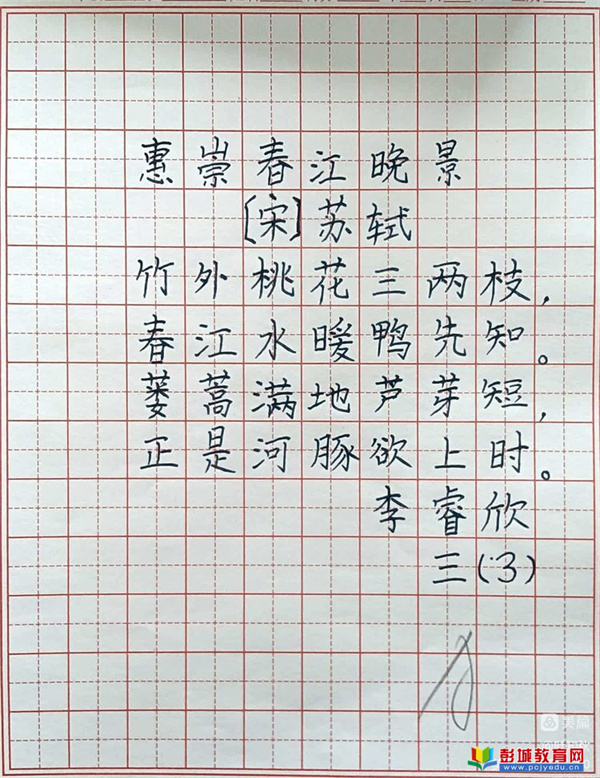 惠崇春江晚景
[宋]苏轼
竹外桃花三两枝，
春江水暖鸭先知。
蒌蒿满地芦芽短，
正是河豚欲上时。
李睿欣
三(3)
彭城教育网
www.pcjyedu.cn